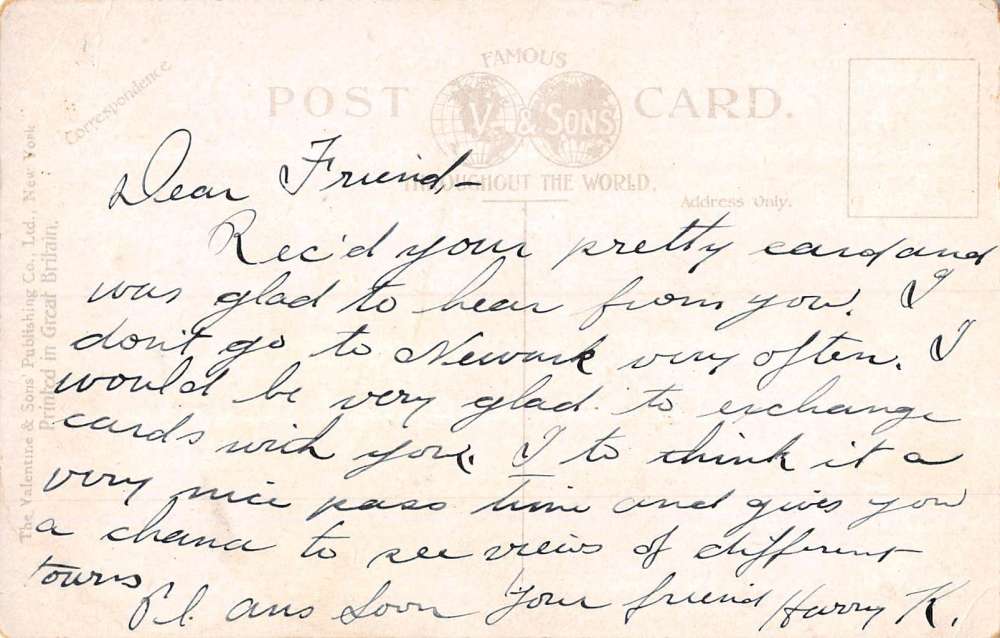 Correspondence
FAMOUS
POST CARD.
V. & SONS
THROUGHOUT THE WORLD.
Address Only.
The Valentine & Sons Publishing Co., Ltd., New York
Printed in Great Britain.
Dear Friend,-
Rec'd your pretty card and
was glad to hear from you. I
don't go to Newark very often. I
would be very glad to exchange
cards with you. I to think it a
very nice pass time and gives you
a chance to see views of different
towns
Pl. ans soon Your friend Harry K.